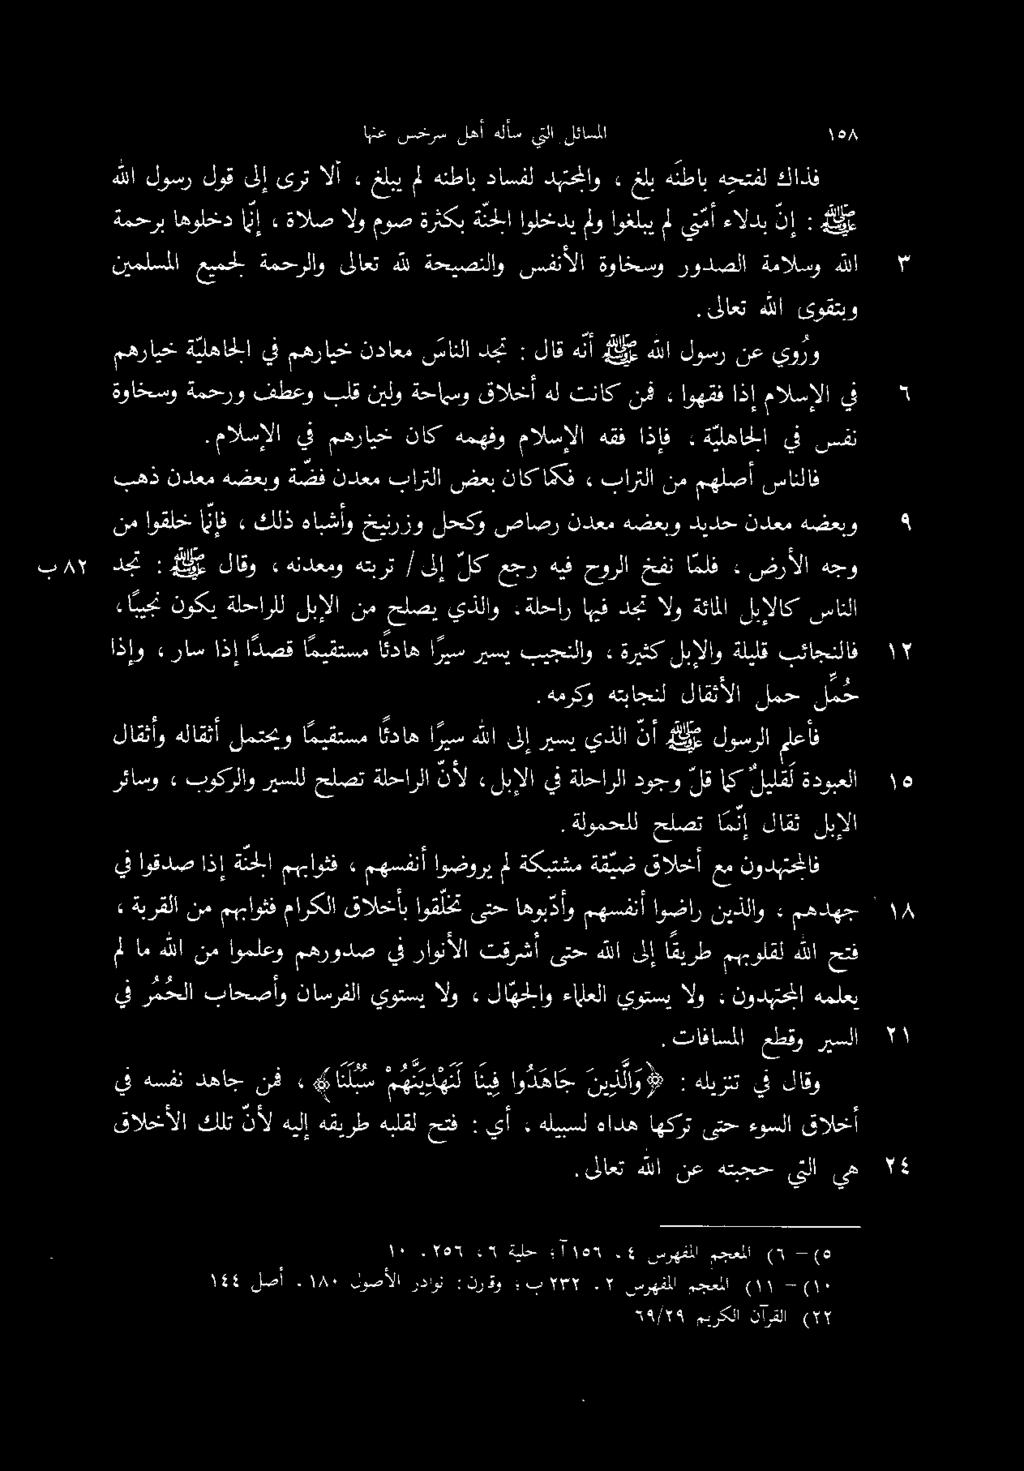 ١٥٨ المسائل التي سأله أهل سرخس عنها
فذاك لفتحِه باطنَه بلغ ، والمجتهد لفساد باطنه لم يبلغ ، ألا ترى إلى قول رسول الله
ﷺ : إنّ بدلاء أمّتي لم يبلغوا ولم يدخلوا الجنّة بكثرة صوم ولا صلاة ، إنّما دخلوها برحمة
٣ الله وسلامة الصدور وسخاوة الأنفس والنصيحة لله تعالى والرحمة لجميع المسلمين
وبتقوى الله تعالى .
ورُوي عن رسول الله ﷺ أنّه قال : تجد الناسَ معادن خيارهم في الجاهليّة خيارهم
٦ في الإسلام إذا فقهوا ، فمن كانت له أخلاق وسماحة ولين قلب وعطف ورحمة وسخاوة
نفس في الجاهليّة ، فإذا فقه الإسلام وفهمه كان خيارهم في الإسلام .
فالناس أصلهم من التراب ، فكما كان بعض التراب معدن فضّة وبعضه معدن ذهب
٩ وبعضه معدن حديد وبعضه معدن رصاص وكحل وزرنيخ وأشباه ذلك ، فإنّما خلقوا من
وجه الأرض ، فلمّا نفخ الروح فيه رجع كلّ إلى / تربته ومعدنه ، وقال ﷺ : تجد ٨٢ ب
الناس كالإبل المائة ولا تجد فيها راحلة ، والذي يصلح من الإبل للراحلة يكون نجيبًا ،
١٢ فالنجائب قليلة والإبل كثيرة ، والنجيب يسير سيرًا هادئًا مستقيمًا قصدًا إذا سار ، وإذا
حُمِّل حمل الأثقال لنجابته وكرمه .
فأعلم الرسول ﷺ أنّ الذي يسير إلى الله سيرًا هادئًا مستقيمًا ويحتمل أثقاله وأثقال
١٥ العبودة لَقليلٌ كما قلّ وجود الراحلة في الإبل ، لأنّ الراحلة تصلح للسير والركوب ، وسائر
الإبل ثقال إنّما تصلح للحمولة .
فالمجتهدون مع أخلاق ضيّقة مشتبكة لم يروضوا أنفسهم ، فثوابهم الجنّة إذا صدقوا في
١٨ جهدهم ، والذين راضوا أنفسهم وأدّبوها حتى تخلّقوا بأخلاق الكرام فثوابهم من القربة ،
فتح الله لقلوبهم طريقًا إلى الله حتى أشرقت الأنوار في صدورهم وعلموا من الله ما لم
يعلمه المجتهدون ، ولا يستوي العلماء والجهّال ، ولا يستوي الفرسان وأصحاب الحُمُر في
٢١ السير وقطع المسافات .
وقال في تنزيله : ﴿وَالَّذِينَ جَاهَدُوا فِينَا لَنَهْدِيَنَّهُمْ سُبُلَنَا﴾ ، فمن جاهد نفسه في
أخلاق السوء حتى تركها هداه لسبيله ، أي : فتح لقلبه طريقه إليه لأنّ تلك الأخلاق
٢٤ هي التي حجبته عن الله تعالى .
٥) – ٦) المعجم المفهرس ٤ ، ١٥٦ آ ؛ حلية ٦ ، ٢٥٦ ، ١٠
١٠) – ١١) المعجم المفهرس ٢ ، ٢٣٢ ب ؛ وقارن : نوادر الأصول ١٨٠ ، أصل ١٤٤
٢٢) القرآن الكريم ٦٩/٢٩